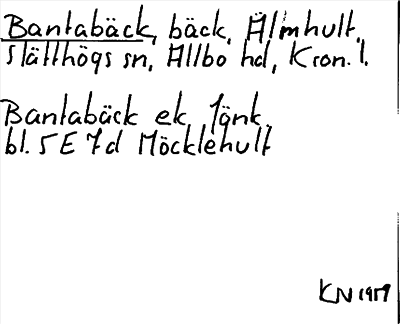 Bantabäck, bäck, Älmhult,
Slätthögs sn, Allbo hd, Kron. l.
Bantabäck ek. Jänk.
bl. 5 E 7 d Möcklehult
KN 1959